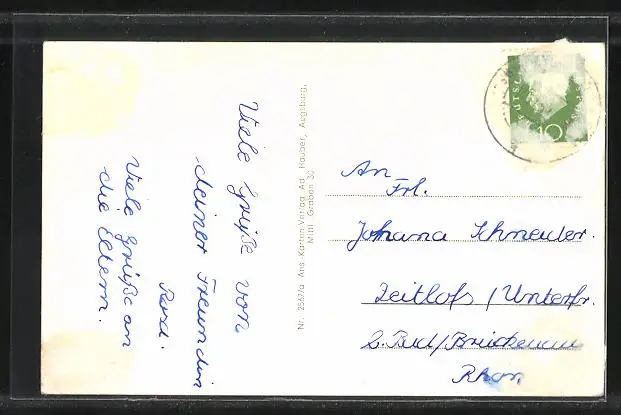 Viele Grüße von
deiner Freundin
Viele Grüße an
die Eltern.
Nr. 2567/a Ans.-Karten-Verlag Ad. Hauber, Augsburg,
Mittl. Graben 30
An
Frl.
Johana
Zeitlofs / Unterfr.
Bad/Brückenau
Rhön
10